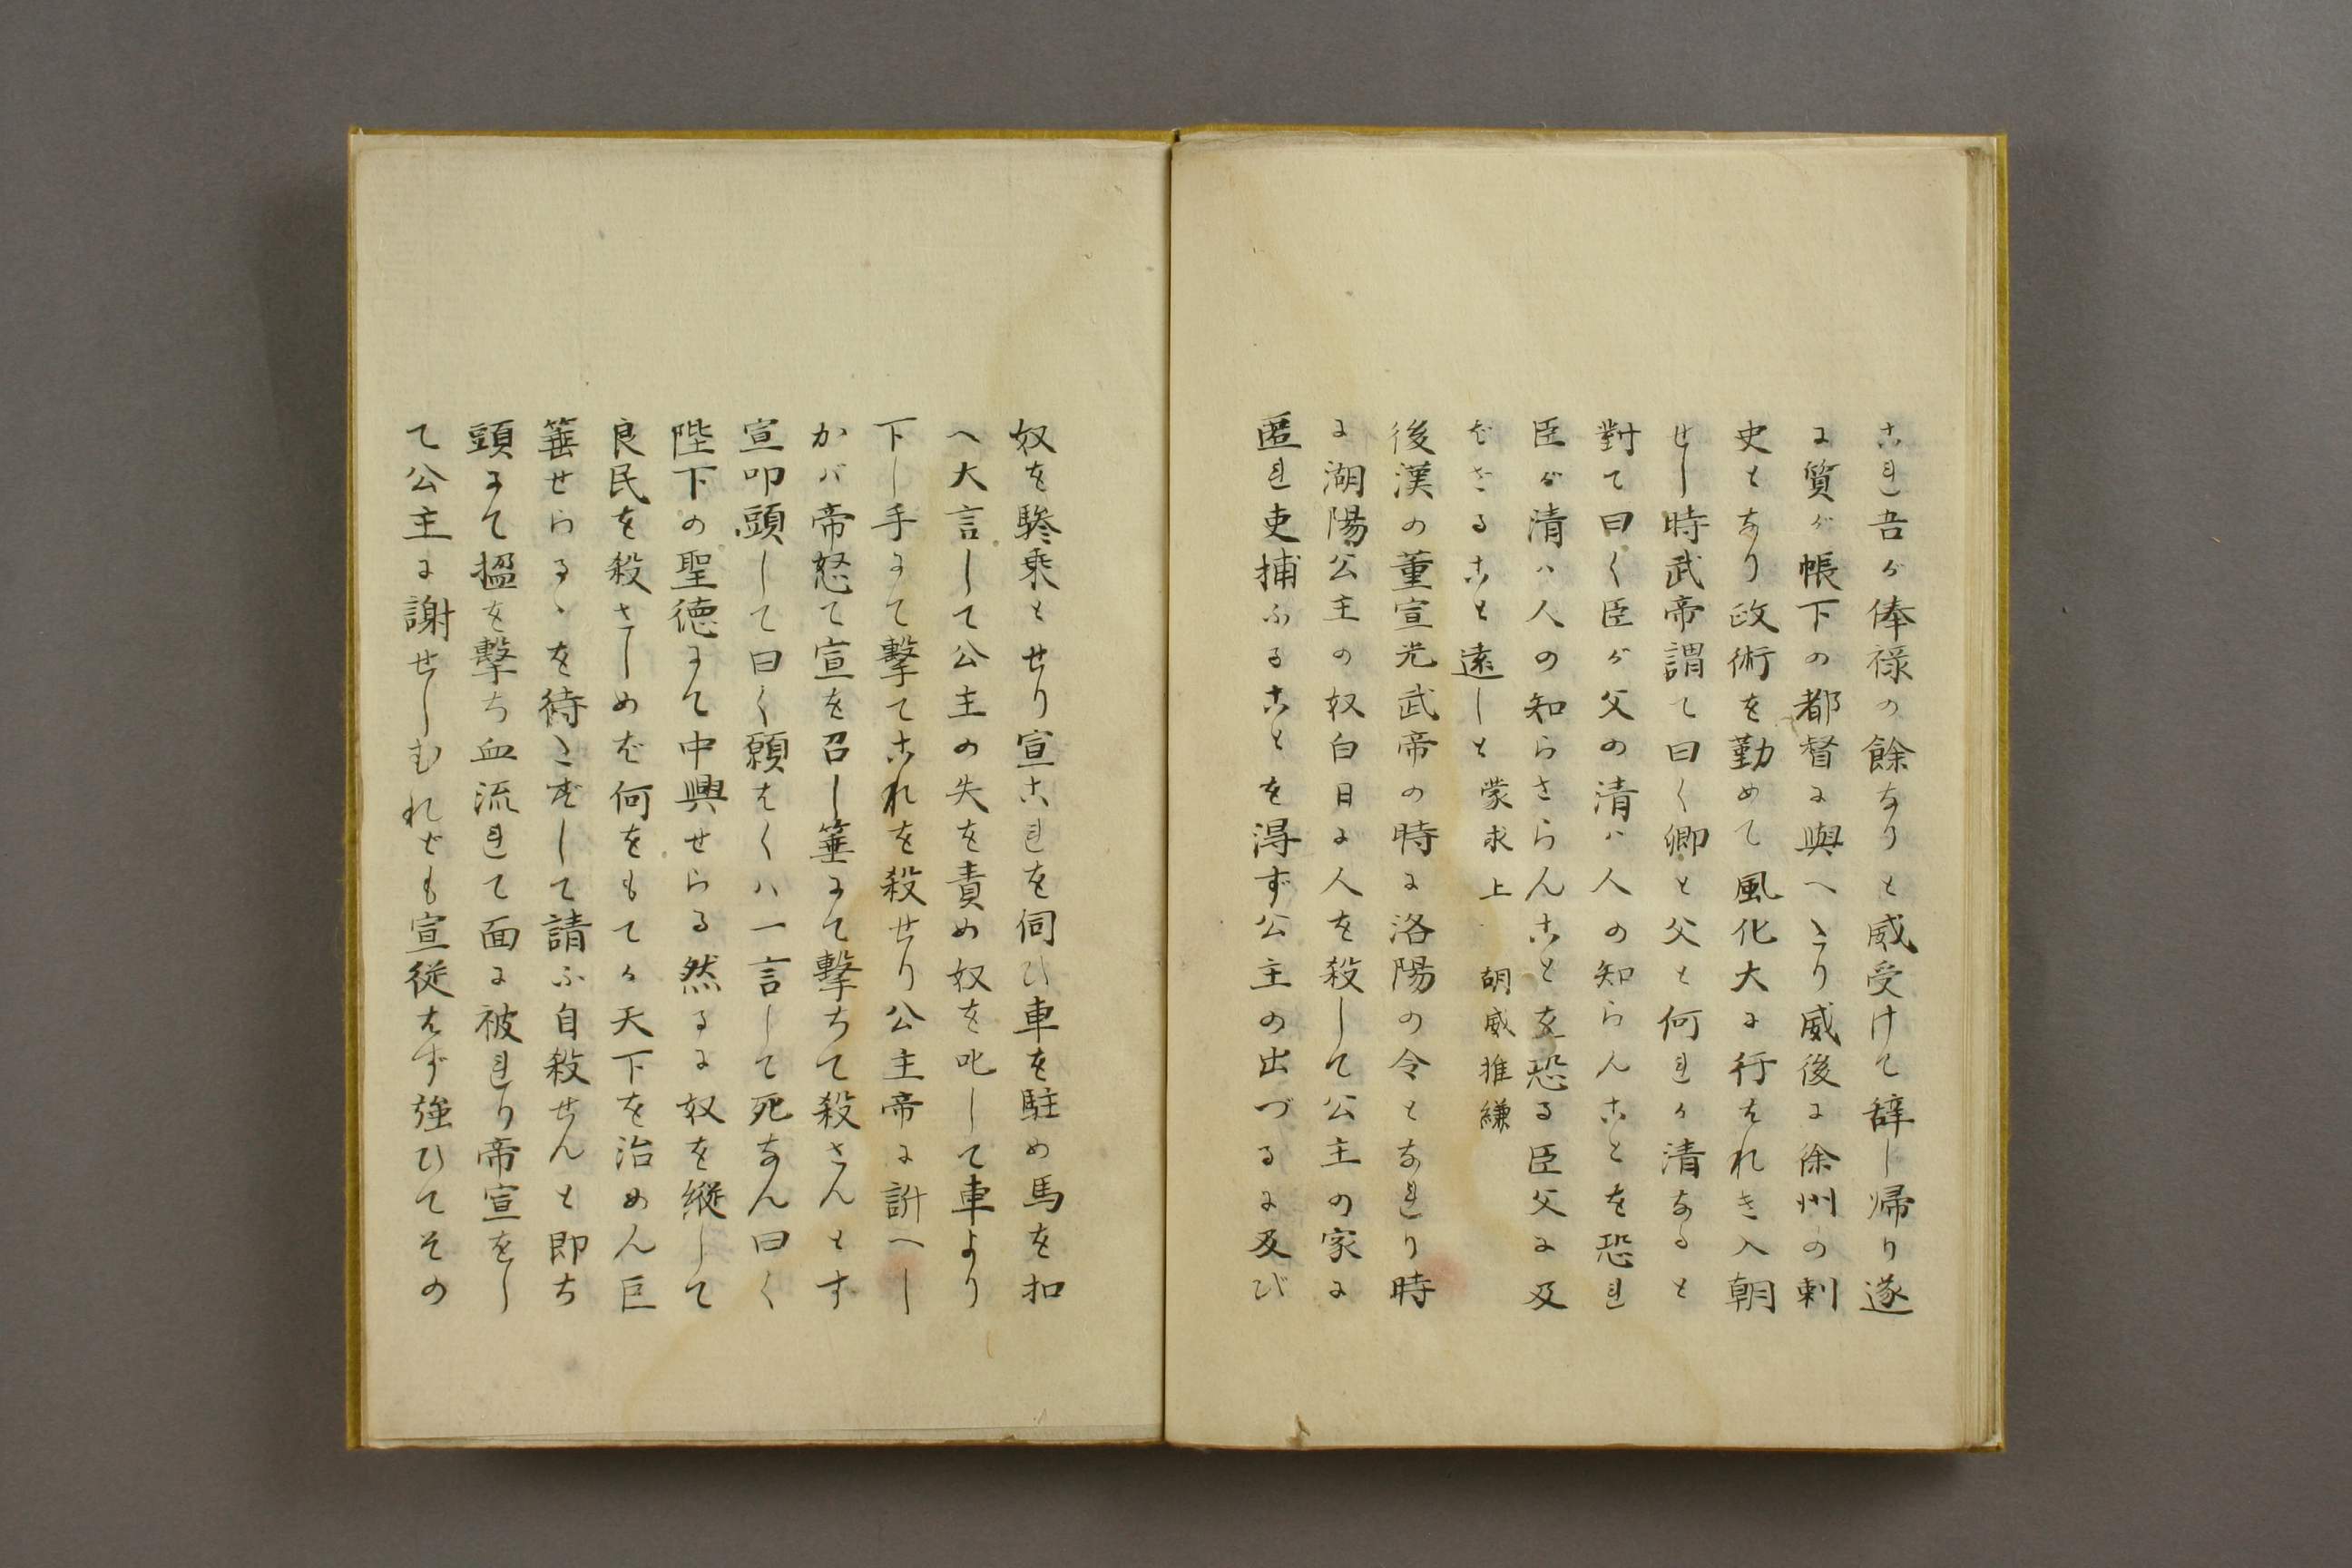 これ吾が俸禄の餘なりと威受けて辞し帰り遂
に質が帳下の都督に與へたり威後に徐州の刺
史となり政術を勤めて風化大に行はれき入朝
せし時武帝謂て曰く卿と父と何れか清なると
對て曰く臣が父の清ハ人の知らんことを恐れ
臣が清ハ人の知らさらんことを恐る臣父に及
ばざること遠しと 蒙求上 胡威推縑
後漢の董宣光武帝の時に洛陽の令となれり時
に湖陽公主の奴白日に人を殺して公主の家に
匿れ吏捕ふることを得ず公主の出づるに及び
奴を驂乗とせり宣これを伺ひ車を駐め馬を扣
へ大言して公主の失を責め奴を叱して車より
下し手にて撃てこれを殺せり公主帝に訴へし
かバ帝怒て宣を召し箠にて撃ちて殺さんとす
宣叩頭して曰く願はくハ一言して死なん曰く
陛下の聖徳にて中興せらる然るに奴を縦して
良民を殺さしめば何をもてか天下を治めん臣
箠せらるゝを待たずして請ふ自殺せんと即ち
頭にて楹を撃ち血流れて面に被れり帝宣をし
て公主に謝せしむれども宣従はず強ひてその